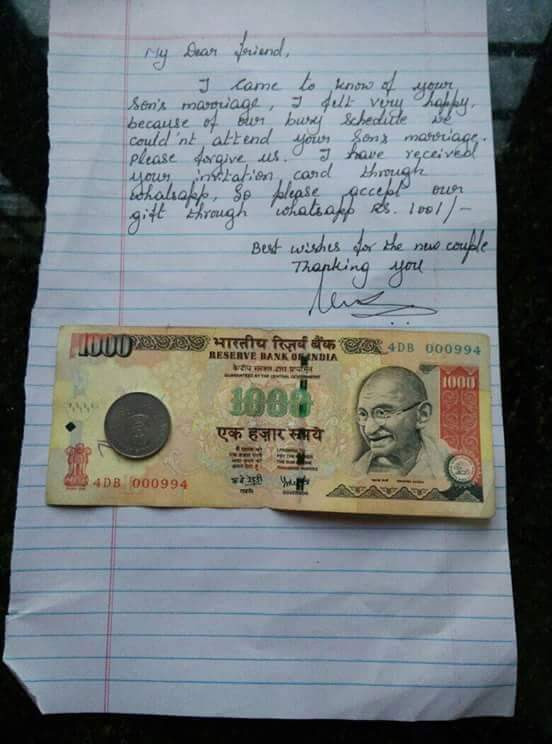 My Dear friend,
I came to know of your
son's marriage, I felt very happy,
because of our busy schedule we
could'nt attend your sons marriage.
please forgive us. I have received
your invitation card through
whatsapp, So please accept our
gift through whatsapp Rs. 1001/-
Best wishes for the new couple
Thanking you
1000 भारतीय रिज़र्व बैंक 4DB 000994
RESERVE BANK OF INDIA
केन्द्रीय सरकार द्वारा प्रत्याभूत
GUARANTEED BY THE CENTRAL GOVERNMENT
1000
1000
एक हज़ार रुपये
4DB 000994
GOVERNOR